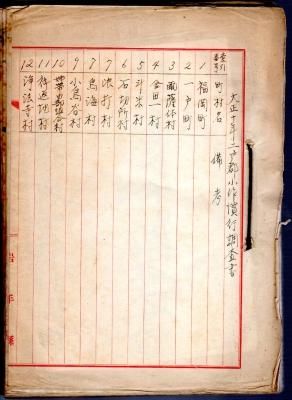 大正十年二戸郡小作慣行調査書
索引番号 町村名 備考
1 福岡町
2 一戸町
3 爾薩体村
4 金田一村
5 斗米村
6 石切所村
7 浪打村
7 鳥海村
9 小鳥谷村
10
11
12 浄法寺村
岩手県